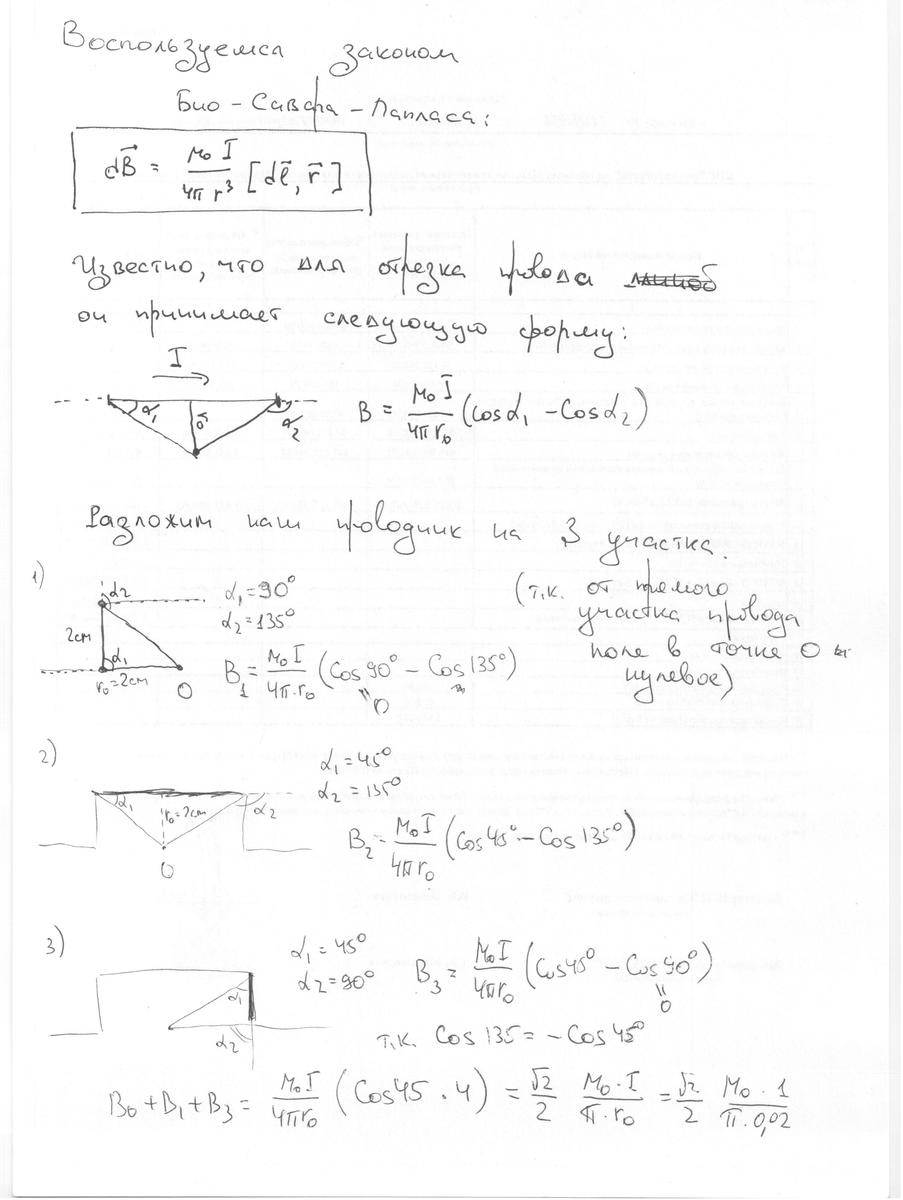 Воспользуемся законом
Био - Савара - Лапласа:
dB⃗ = μ₀ I / 4π r³ [dℓ⃗, r⃗]
Известно, что для отрезка провода
он принимает следующую форму:
I
α₁ r₀ α₂
B = μ₀ I / 4π r₀ (cos α₁ - Cos α₂)
Разложим наш проводник на 3 участка.
(т.к. от прямого
участка провода
поле в точке О
нулевое)
1)
α₂
2см
α₁
r₀=2см
О
α₁=90°
α₂=135°
B₁ = μ₀ I / 4π·r₀ (Cos 90° - Cos 135°)
0
2)
α₁ r₀=2см α₂
О
α₁=45°
α₂=135°
B₂ = μ₀ I / 4π r₀ (Cos 45° - Cos 135°)
3)
α₁
α₂
α₁=45°
α₂=90°
B₃ = μ₀ I / 4π r₀ (Cos 45° - Cos 90°)
0
т.к. Cos 135 = -Cos 45°
B₀ + B₁ + B₃ = μ₀ I / 4π r₀ (Cos 45 · 4) = √2 / 2 μ₀ · I / π · r₀ = √2 / 2 μ₀ · 1 / π · 0,02